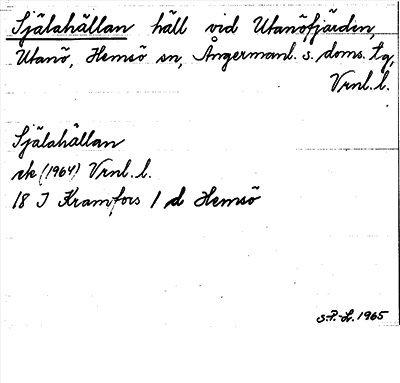 Själahällan häll vid Utanöfjärden,
Utanö, Hemsö sn, Ångermanl. s. doms. tg,
Vrnl. l.
Själahällan
ek (1964) Vrnl. l.
18 I Kramfors 1 d Hemsö
S.P.-H. 1965